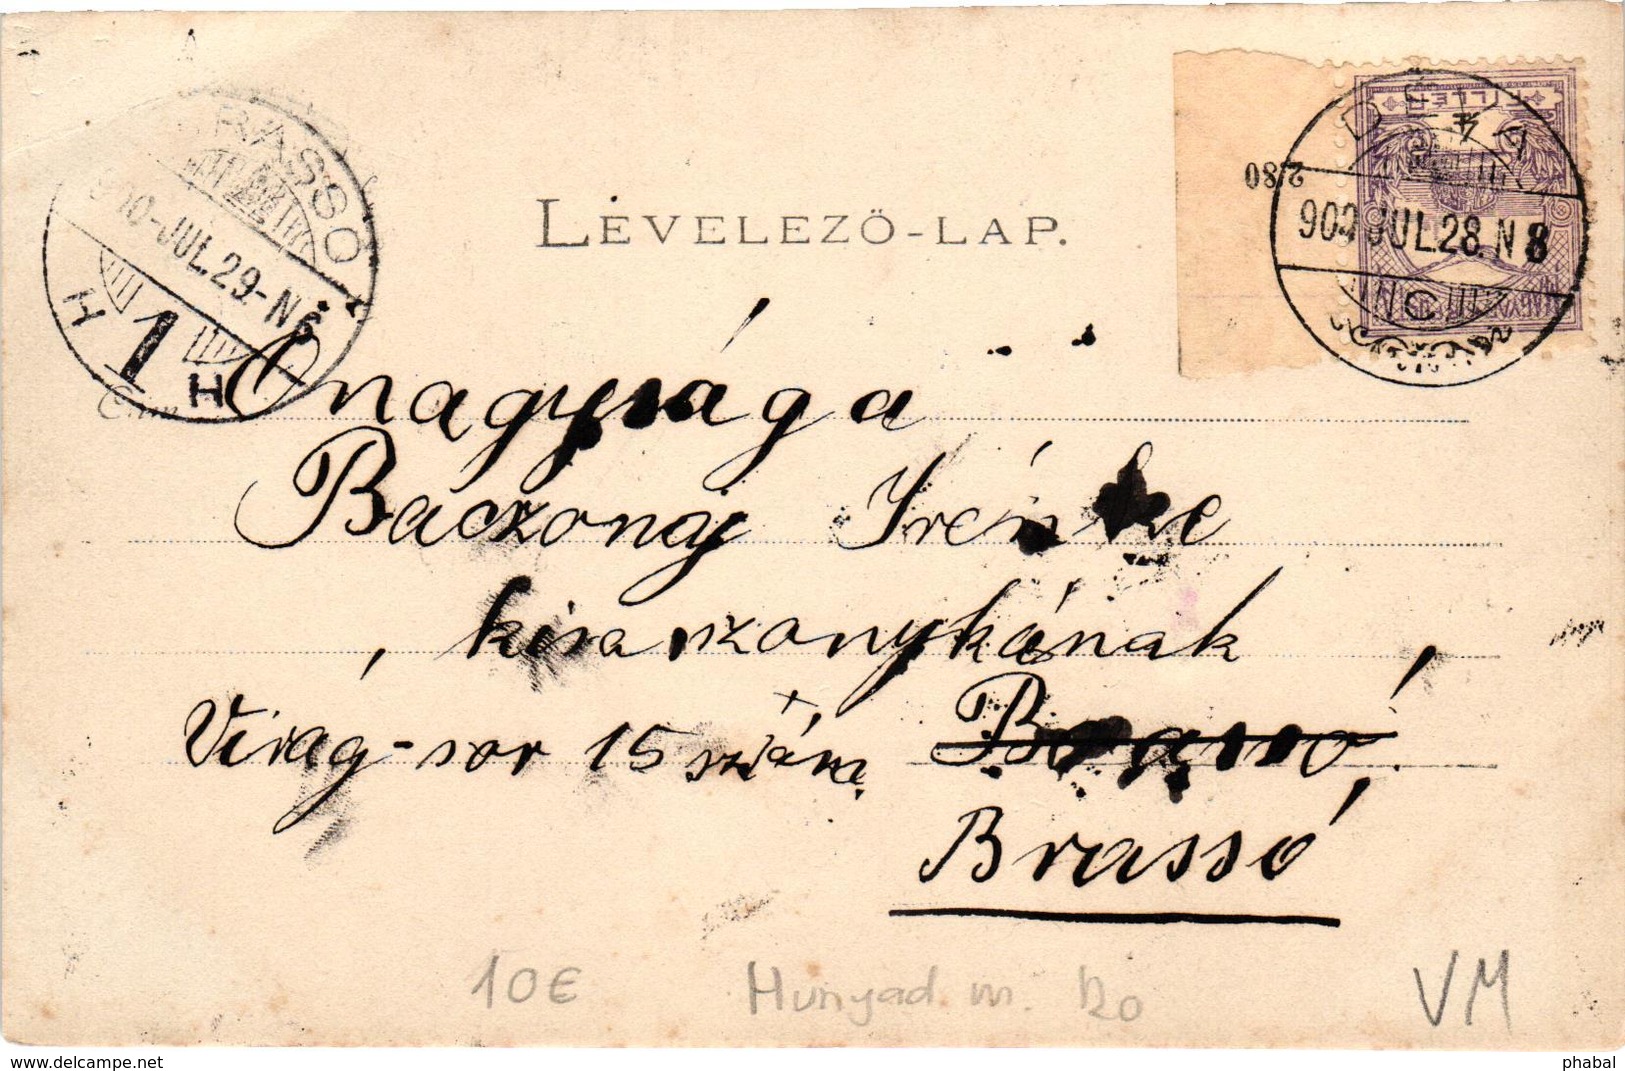 LEVELEZŐ-LAP.
BRASSÓ
900-JUL.29-N6
H 1 H
FILLÉR
2·80
DÉVA
900 JUL.28.N8
C
Őnagysága
Baczonaj Irénke
kisasszonykának
Virág-sor 15 szám. Brassó.
Brassó
10€
Hunyad. m. Ro
VM
delcampe.net
phabal